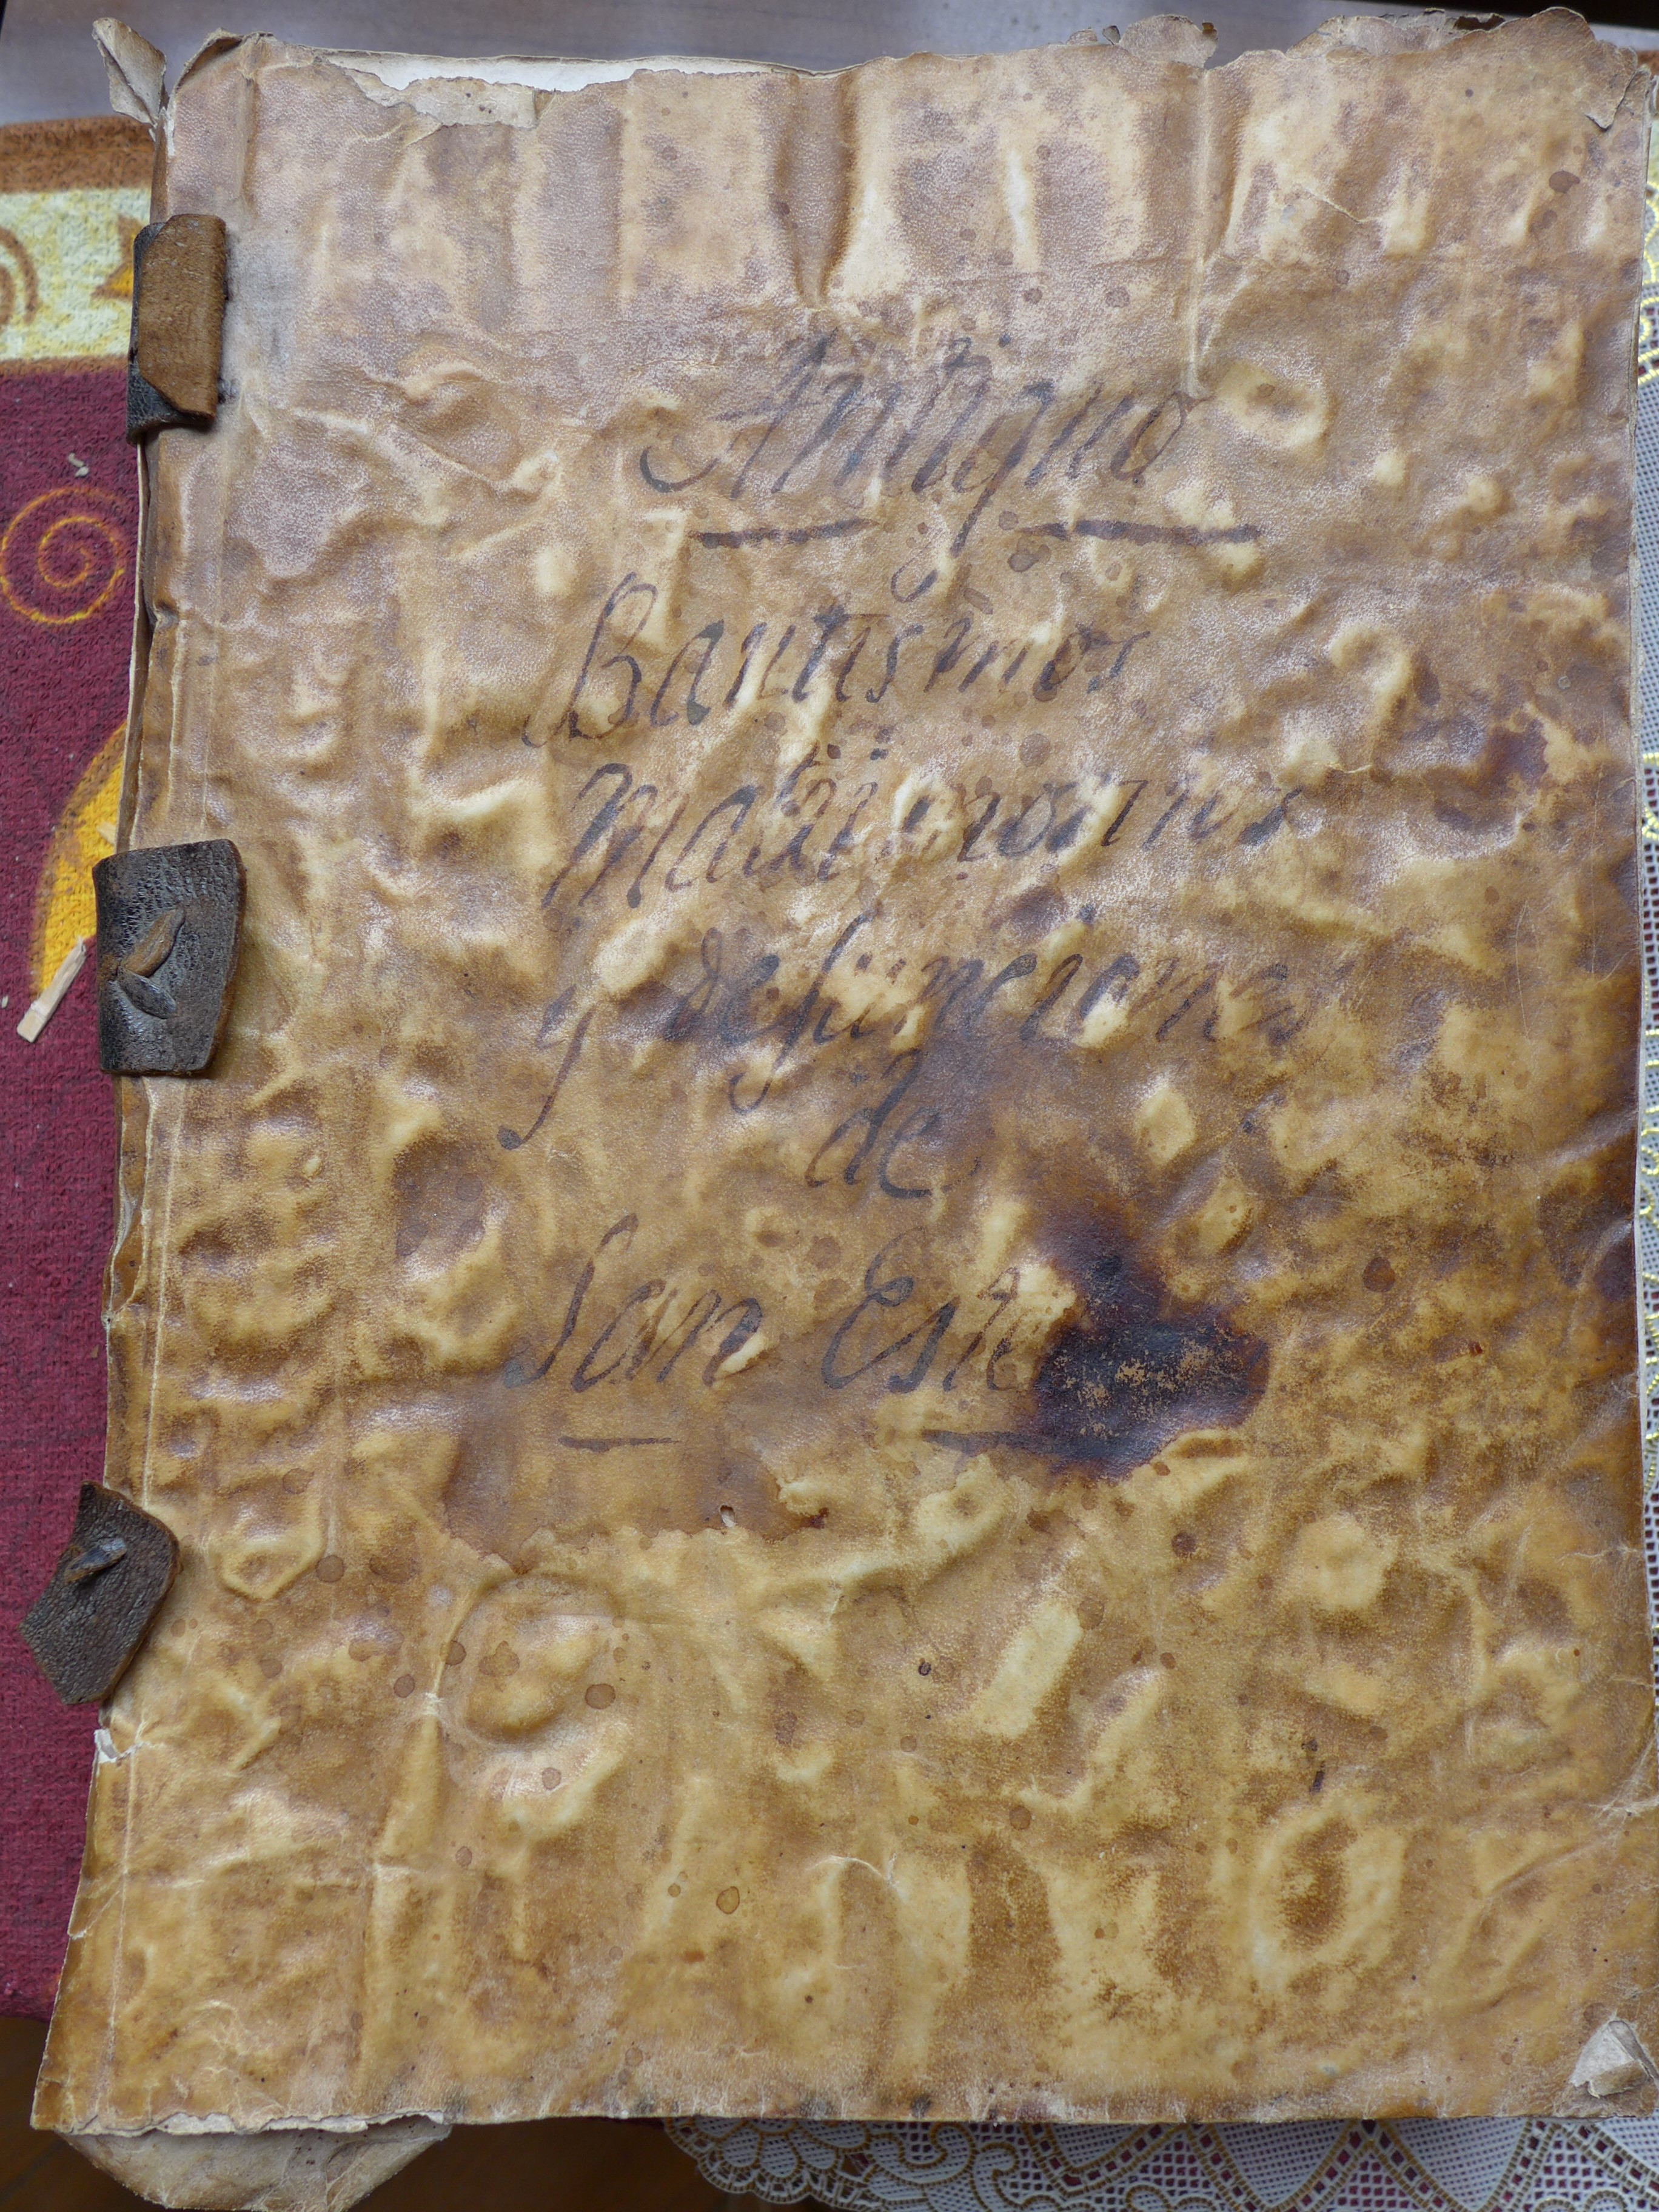 Antiguo
Bautismos
Matrimonios
y defunciones
de
San Este